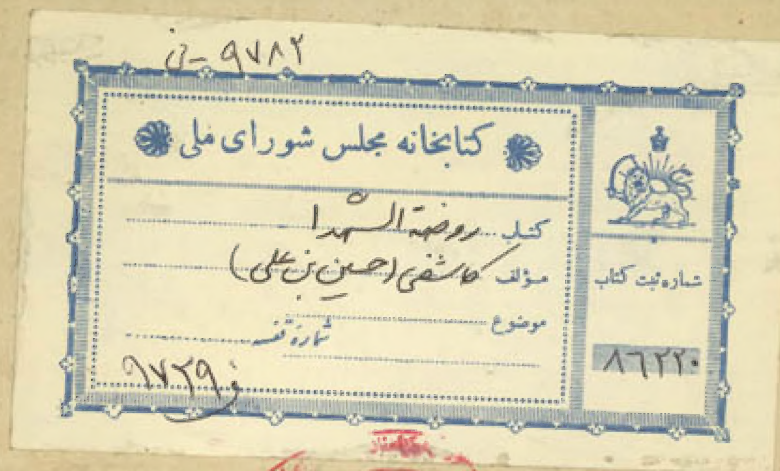 ۹۷۸۲ - فی
کتابخانه مجلس شورای ملی
کتاب روضة الشهدا
مؤلف کاشفی (حسین بن علی)
موضوع
شمارهٔ قفسه
ف ۹۷۲۹
شماره ثبت کتاب
۸۶۲۲۰